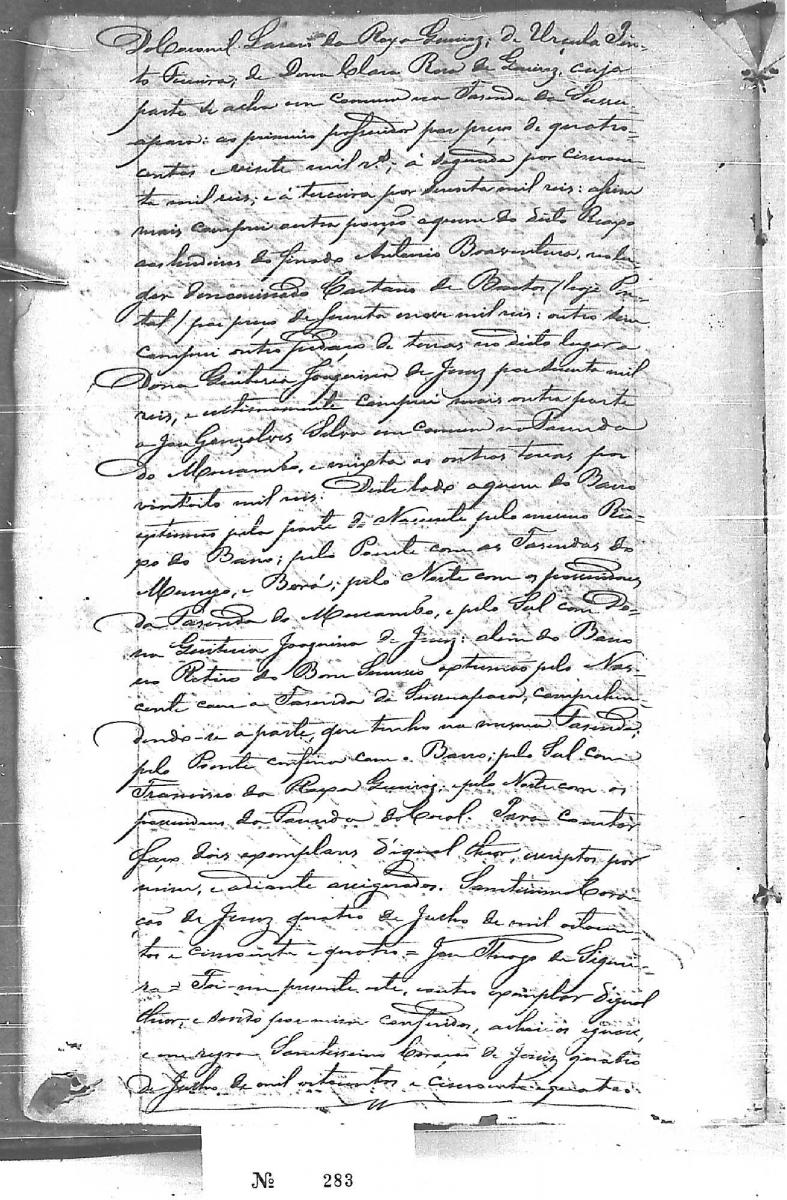 do Coronel Lasaro da Roxa Queiroz; de Ursula Pin-
to Ferreira; de Dona Clara Rosa de Queiroz, cuja
parte se acha em commum na Fasenda da Sussu-
apara: ao primeiro possuidor por preço de quatro-
centos e vinte mil rs; á segunda por cincoen-
ta mil reis; e á terceira por setenta mil reis: assim
mais comprei outra porção aquem do dito Riaxo
aos herdeiros do finado Antonio Boaventura, no lu-
gar denominado Caetano de Bastos / hoje
/ por preço de e nove mil reis: outro sim
comprei outro pedaço de terras no dito lugar a
Dona Quiteria Joaquina de Jesuz por mil
reis, e ultimamente comprei mais outra parte
a Joze Gonçalves Silva em commum na Fasenda
do Mocambo, e mixta as outras terras por
vintoito mil reis. Deste lado aquem do Barro
extremo pela parte do Nascente pelo mesmo Ria-
xo do Barro; pelo Poente com as Fasendas do
e Boró; pelo Norte com os possuidores
da Fasenda do Mocambo, e pelo Sul com Do-
na Quiteria Joaquina de Jesuz: alem do Barro
no Retiro do Bom Sucesso extremo pelo Nas-
cente com a Fasenda da Sussuapara, comprehen-
dendo-se a parte, que tenho na mesma Fasenda;
pelo Poente confina com o Barro; pelo Sul com
Francisco da Roxa Queiroz: e pelo Norte com os
possuidores da Fasenda do Coral. Para constar
faço dois exemplares d'igual theor, escriptos por
mim, e adiante assignados. Santissimo Cora-
ção de Jesuz quatro de Julho de mil oitocen-
tos e cincoenta e quatro = Joze Thiago de Siquei-
ra = Foi-me presente este, e outro exemplar d'igual
theor, e sendo por mim conferidos, achei-os iguaes,
e em regra Santissimo Coração de Jesuz quatro
de Julho de mil oitocentos e cincoenta e quatro.
№ 283